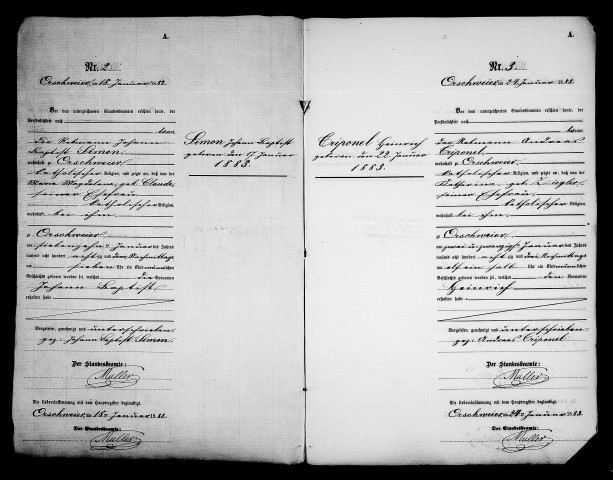 A.
Nr. 2
Orschweier, a 18 Januar 1883.
Vor dem unterzeichneten Standesbeamten erschien heute, der
Persönlichkeit nach
kannt,
der Rebmann Johann
Baptist Simon
wohnhaft zu Orschweier
katholischer Religion, und zeigte an, daß von der
Maria Magdalena, geb. Claude,
seiner Ehefrau
katholischer Religion,
wohnhaft bei ihm
zu Orschweier
am siebenzehn Januar des Jahres
tausend acht hundert achtzig und drei Nachmittags
um sieben Uhr ein Kind männlichen
Geschlechts geboren worden sei, welches die Vornamen
Johann Baptist
erhalten habe
Vorgelesen, genehmigt und unterschrieben
gez. Johann Baptist Simon.
Der Standesbeamte:
Muller
Die Uebereinstimmung mit dem Hauptregister beglaubigt.
Orschweier, a 18 Januar 1883.
Der Standesbeamte:
Muller
Simon Johann Baptist
geboren den 17 Januar
1883.
Criponel Heinrich
geboren den 22 Januar
1883.
A.
Nr. 3
Orschweier, a 24 Januar 1883.
Vor dem unterzeichneten Standesbeamten erschien heute, der
Persönlichkeit nach
kannt,
der Rebmann Andreas
Criponel
wohnhaft zu Orschweier
katholischer Religion, und zeigte an, daß von der
Katharina, geb. Ziegler
seiner Ehefrau
katholischer Religion,
wohnhaft bei ihm
zu Orschweier
am zwei und zwanzigsten Januar des Jahres
tausend acht hundert achtzig und drei Nachmittags
um halb Uhr ein Kind männlichen
Geschlechts geboren worden sei, welches den Vornamen
Heinrich
erhalten habe
Vorgelesen, genehmigt und unterschrieben
gez. Andreas Criponel
Der Standesbeamte:
Muller
Die Uebereinstimmung mit dem Hauptregister beglaubigt.
Orschweier, a 24 Januar 1883.
Der Standesbeamte:
Muller